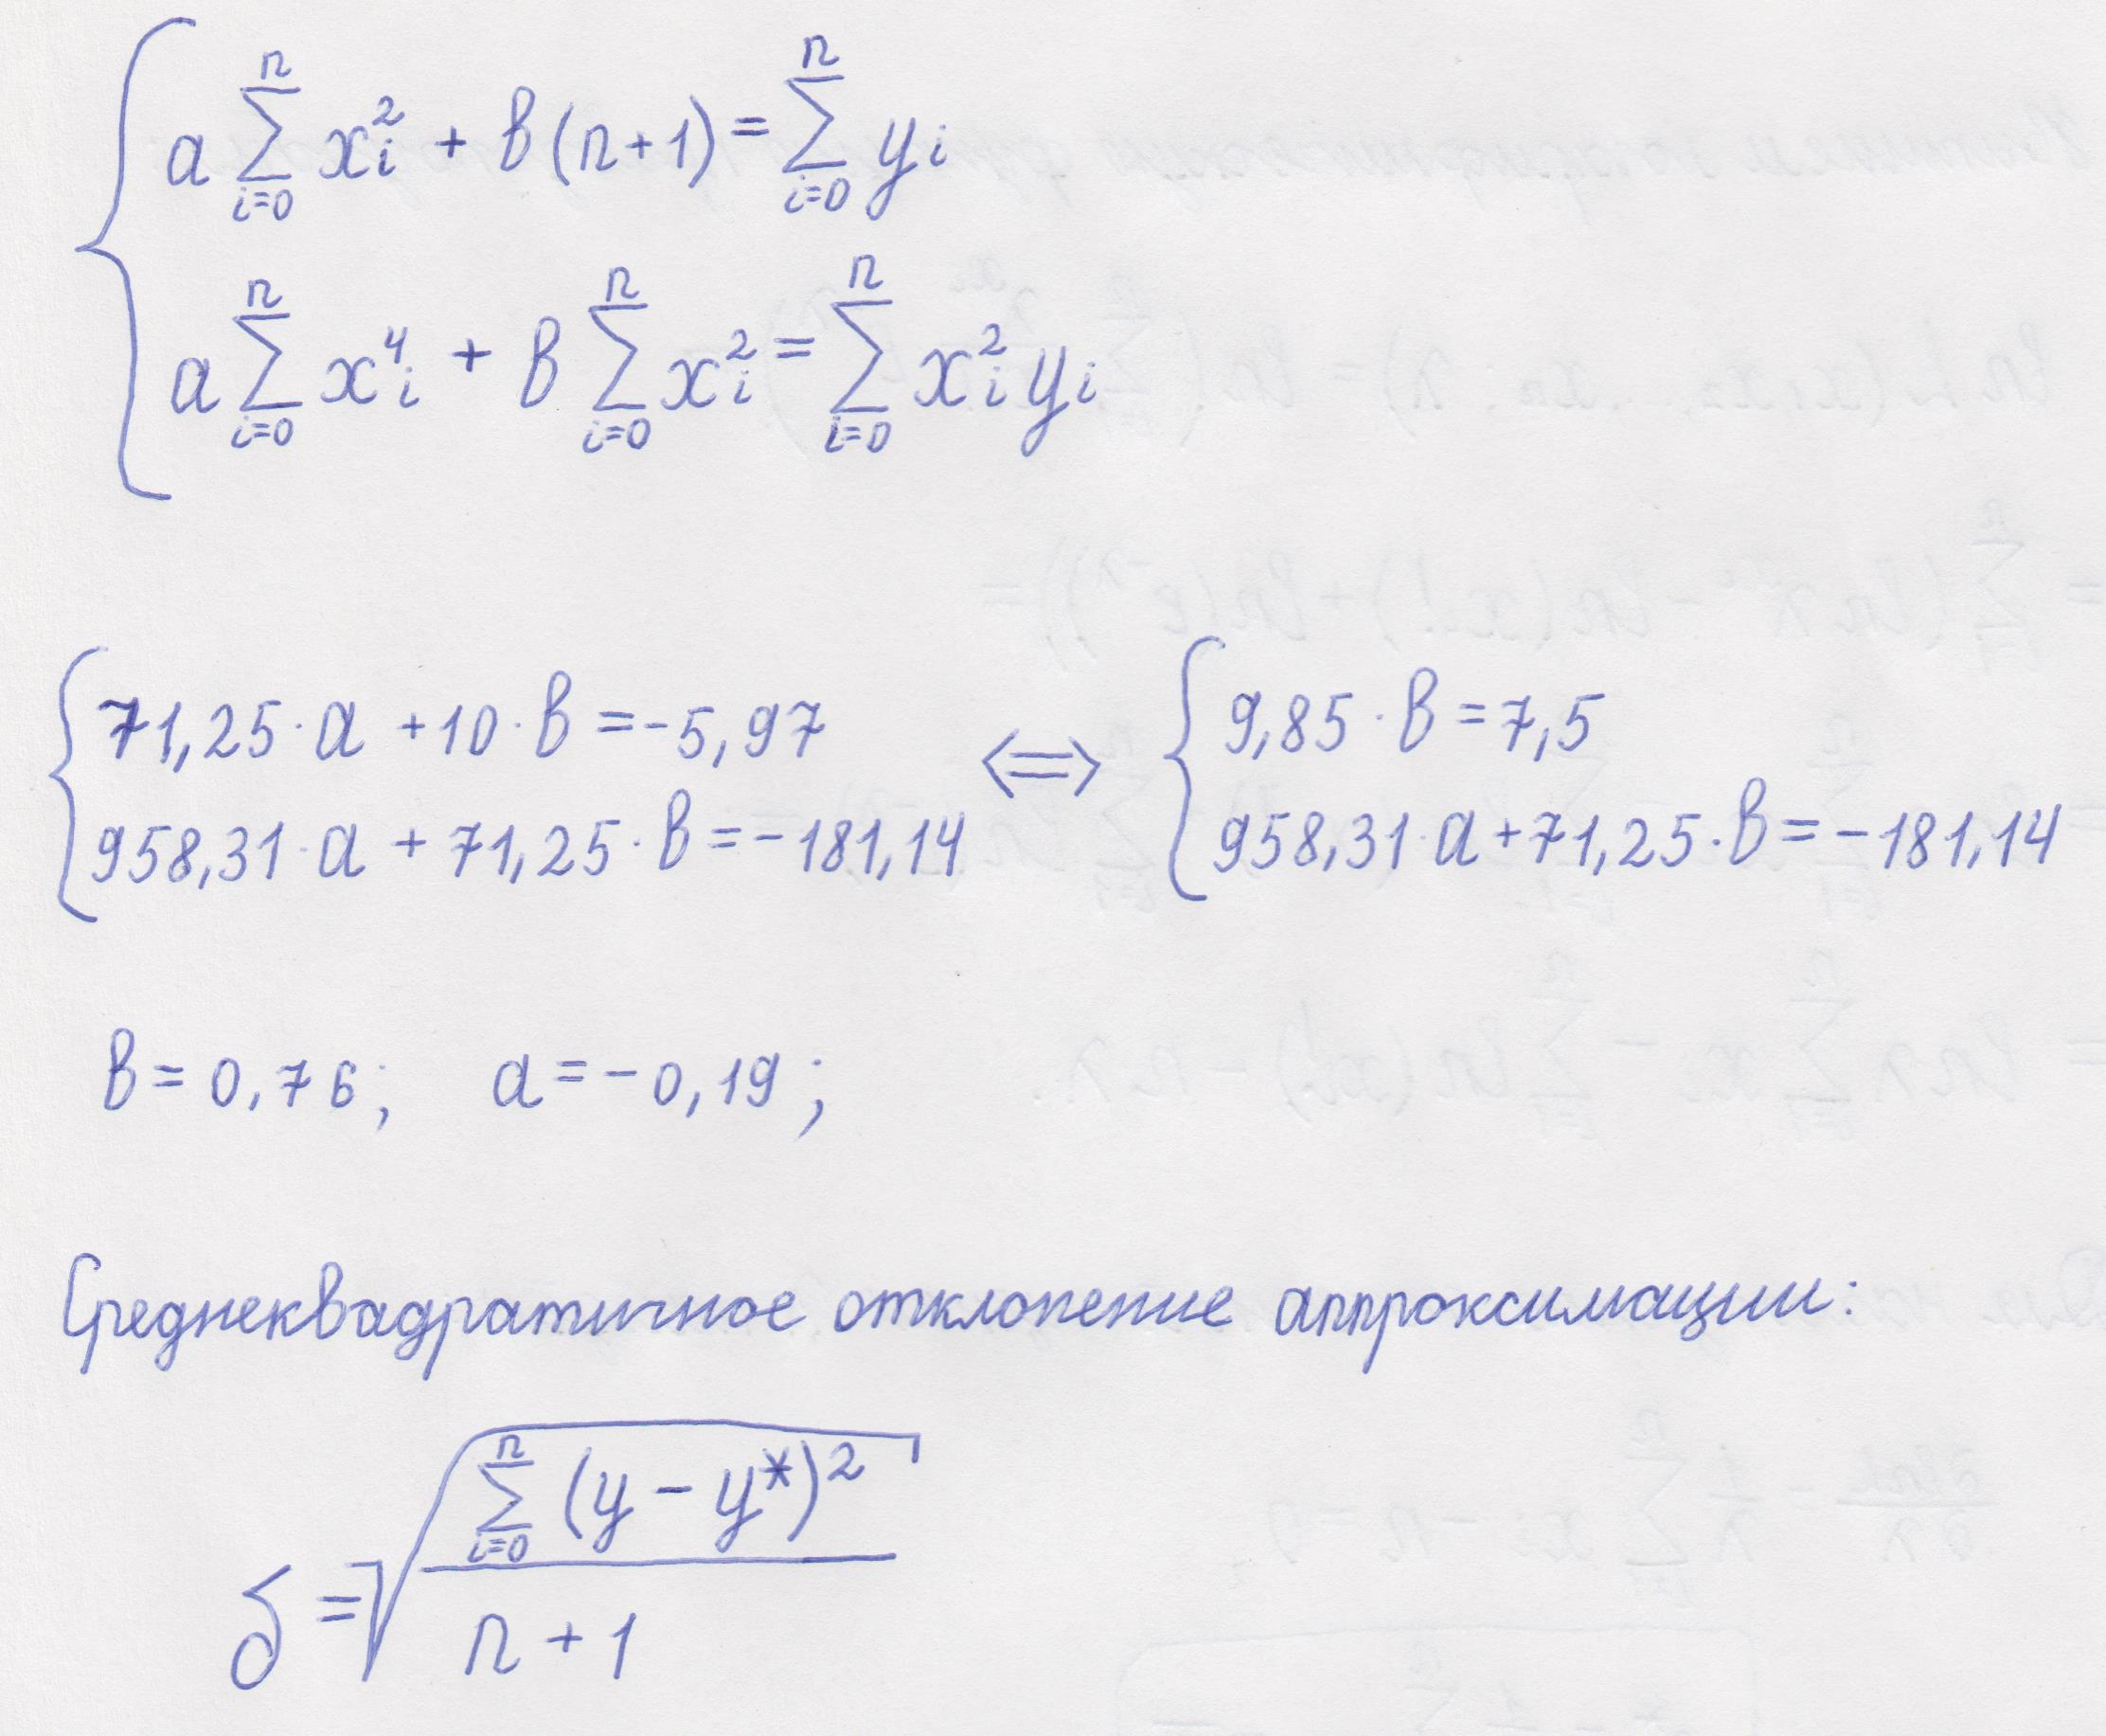 a ∑_{i=0}^{n} x_i^2 + b(n+1) = ∑_{i=0}^{n} y_i
a ∑_{i=0}^{n} x_i^4 + b ∑_{i=0}^{n} x_i^2 = ∑_{i=0}^{n} x_i^2 y_i
{ 71,25·a + 10·b = -5,97 <=> { 9,85·b = 7,5
958,31·a + 71,25·b = -181,14 958,31·a + 71,25·b = -181,14
b = 0,76; a = -0,19;
Среднеквадратичное отклонение аппроксимации:
δ = √(∑_{i=0}^{n} (y - y*)^2 / (n + 1))